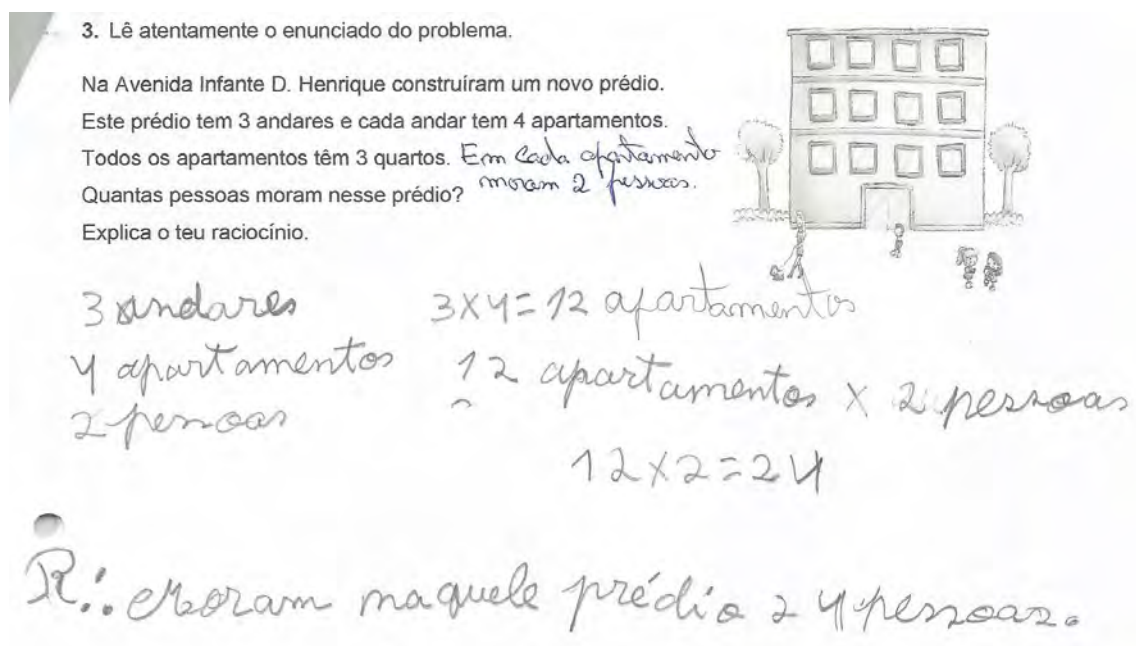 3. Lê atentamente o enunciado do problema.
Na Avenida Infante D. Henrique construíram um novo prédio.
Este prédio tem 3 andares e cada andar tem 4 apartamentos.
Todos os apartamentos têm 3 quartos. Em cada apartamento
moram 2 pessoas.
Quantas pessoas moram nesse prédio?
Explica o teu raciocínio.
3 andares
4 apartamentos
2 pessoas
3x4=12 apartamentos
12 apartamentos x 2 pessoas
12x2=24
R.: Moram naquele prédio 24 pessoas.